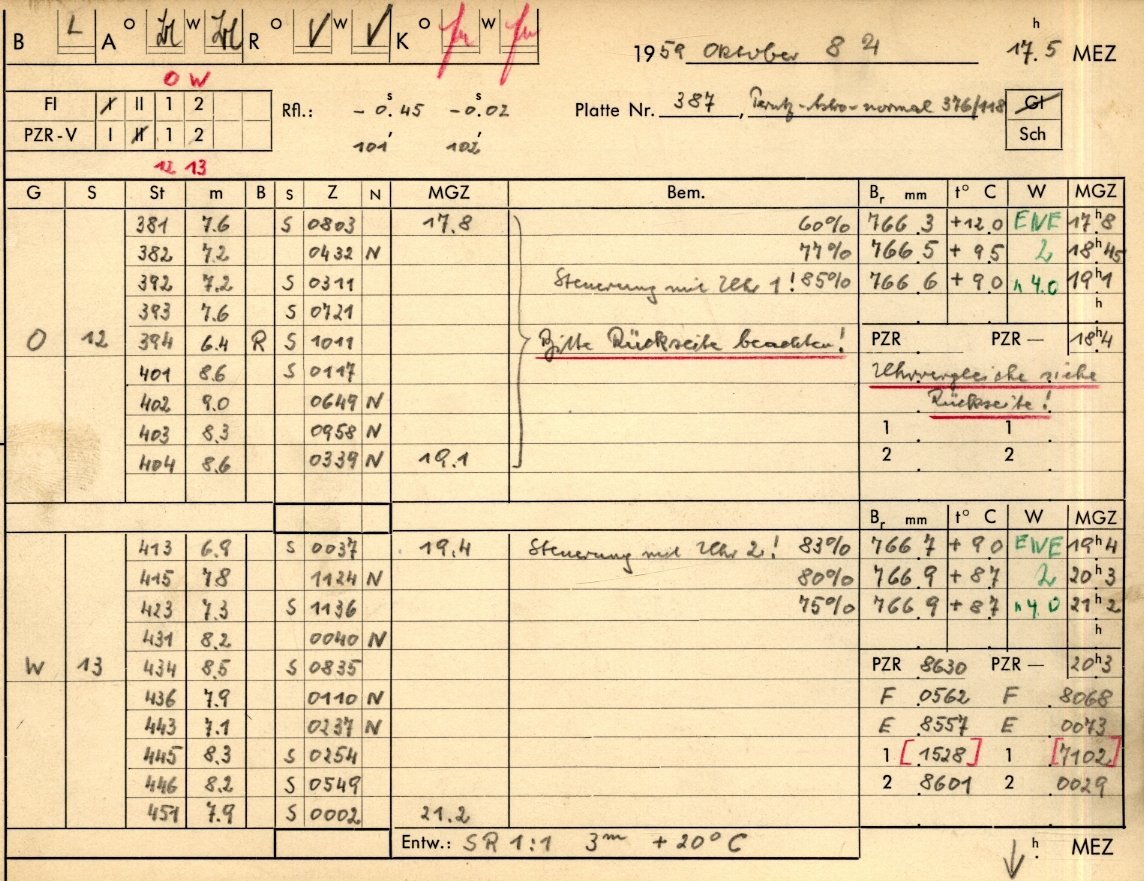 B L A O W R O V W V K O W 1959 Oktober 8 24 17.5 h MEZ
O W
FI I II 1 2 Rfl.: - 0.s45 - 0.s02 Platte Nr. 387, Perutz-Astro-normal 376/118 GI
PZR-V I II 1 2 101 102 Sch
12 13
G S St m B S Z N MGZ Bem. Br mm t° C W MGZ
381 7.6 S 0803 17.8 60% 766.3 +12.0 ENE 17h8
382 7.2 0432 N 77% 766.5 + 9.5 2 18h45
392 7.2 S 0311 Steuerung mit Uhr 1! 85% 766.6 + 9.0 n 4.0 19h1
393 7.6 S 0721 h
O 12 394 6.4 R S 1011 Bitte Rückseite beachten! PZR PZR — 18h4
401 8.6 S 0117 Uhrvergleiche siehe
402 9.0 0649 N Rückseite!
403 8.3 0958 N 1 1
404 8.6 0339 N 19.1 2 2
Br mm t° C W MGZ
413 6.9 S 0037 19.4 Steuerung mit Uhr 2! 83% 766.7 + 9.0 ENE 19h4
415 7.8 1124 N 80% 766.9 + 8.7 2 20h3
423 7.3 S 1136 75% 766.9 + 8.7 n 4.0 21h2
431 8.2 0040 N h
W 13 434 8.5 S 0835 PZR 8630 PZR — 20h3
436 7.9 0110 N F 0562 F 8068
443 7.1 0237 N E 8557 E 0073
445 8.3 S 0254 1 [1528] 1 [7102]
446 8.2 S 0549 2 8601 2 0029
451 7.9 S 0002 21.2
Entw.: SR 1:1 3m + 20° C h MEZ